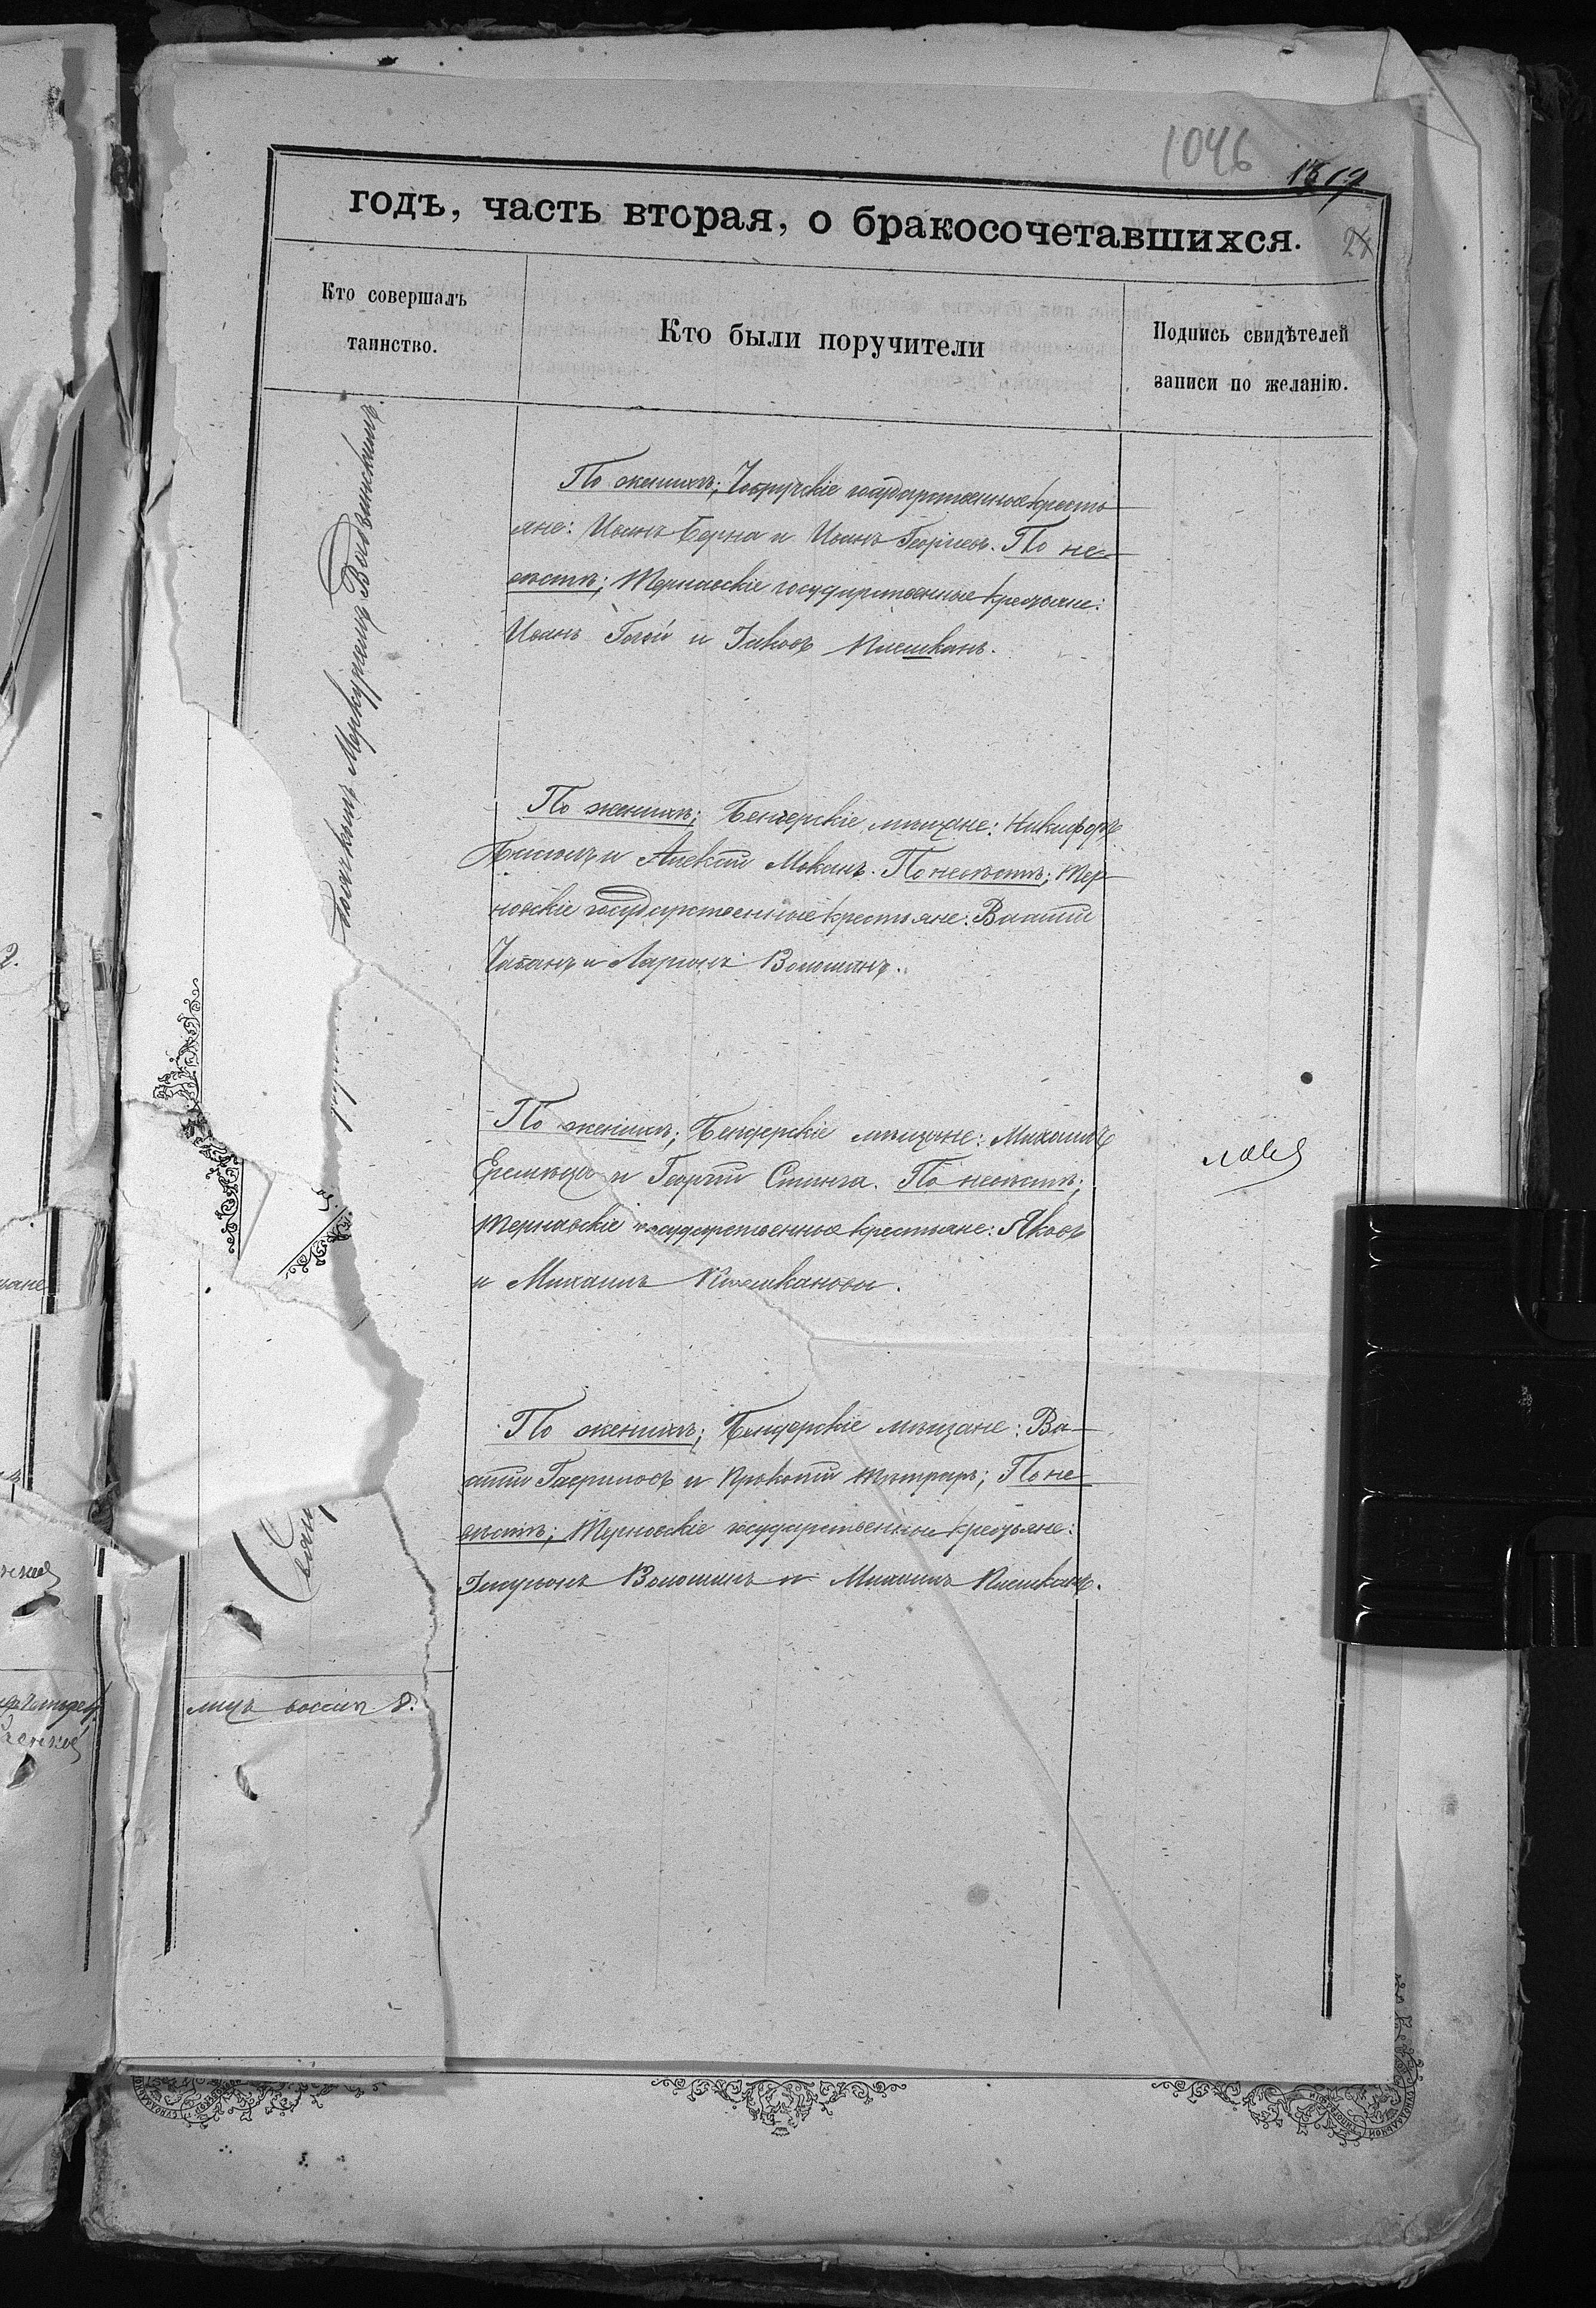 1046
1619
годъ, часть вторая, о бракосочетавшихся.
Кто совершалъ
таинство.
Кто были поручители
Подпись свидѣтелей
записи по желанію.
Меркуріемъ
По женихѣ; Чобручскіе государственные кресть
яне: Иванъ Берна и Иванъ Георгіевъ. По не-
вѣстѣ; Терновскіе государственные крестьяне:
Иванъ и Іаковъ Плешканъ.
По женихѣ; Бендерскіе мѣщане: Никифоръ
и Алексій Моканъ. По невѣстѣ; Тер-
новскіе государственные крестьяне: Василій
Чабанъ и Ларіонъ Волошинъ.
По женихѣ; Бендерскіе мѣщане: Михаилъ
и Георгій Стинга. По невѣстѣ;
Терновскіе государственные крестьяне: Яковъ
и Михаилъ Плешкановы.
По женихѣ; Бендерскіе мѣщане: Ва-
силій Гавриловъ и Прокопій; По не
вѣстѣ; Терновскіе государственные крестьяне:
Волошинъ и Михаилъ Плешканъ.
лицъ 8.